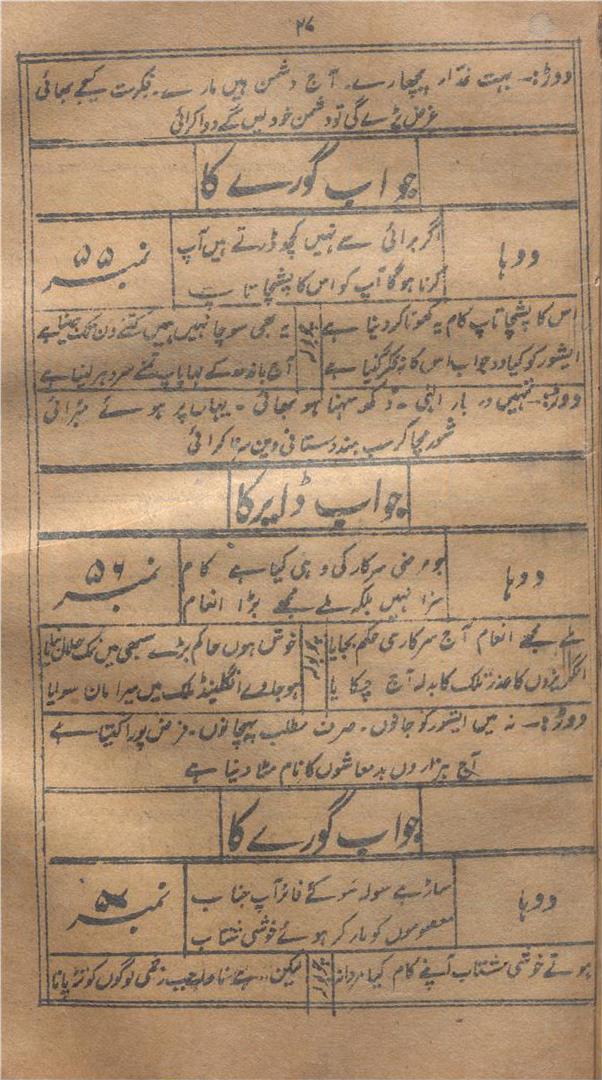 ۲۷
دوڑ:۔ بہت غدار پچھارے۔ آج دشمن ہیں مارے۔ فکر مت کیجے بھائی
غرض پڑے گی تو دشمن خود لیں گے دوا کرائی
جواب گورے کا
دوہا
اگر برائی سے نہیں کچھ ڈرتے ہیں آپ
کرنا ہوگا آپ کو اس کا پشچا تاپ
نمبر ۵۵
اس کا پشچا تاپ کام یہ کھوٹا کر دینا ہے
یہ بھی سوچا نہیں ہمیں کتنے دن تک جینا ہے
ایشور کو کیا دو جواب اس کا
آج باندھ کے پاپ تمنے سر دھر لینا ہے
دوڑ:۔ نہیں دربار الہی۔ دکھ سہنا ہو بھائی۔ یہاں پر ہوئے برائی
شور مچا کر سب ہندوستانی دیں سزا کرائی
جواب ڈایر کا
دوہا
جو مرضی سرکار کی وہی کیا ہے کام
سزا نہیں بلکہ ملے مجھے بڑا انعام
نمبر ۵۶
ملے مجھے انعام آج سرکاری حکم بجایا
خوش ہوں حاکم بڑے سبھی میں نمک حلال
انگریزوں کا غدر تلک کا بدلہ آج چکایا
ہو جاوے انگلینڈ ملک میں میرا مان سوایا
دوڑ:۔ نہ میں ایشور کو جانوں۔ صرف مطلب پہچانوں۔ فرض پورا کیتا ہے
آج ہزاروں بدمعاشوں کا نام مٹا دینا ہے
جواب گورے کا
دوہا
ساڑھے سولہ سو کئے فائر آپ جناب
معصوموں کو مار کر ہوئے خوشی شتاب
نمبر ۵۷
ہوتے خوشی شتاب آپنے کام کیا مردانہ
زخمی لوگوں کو تڑپانا